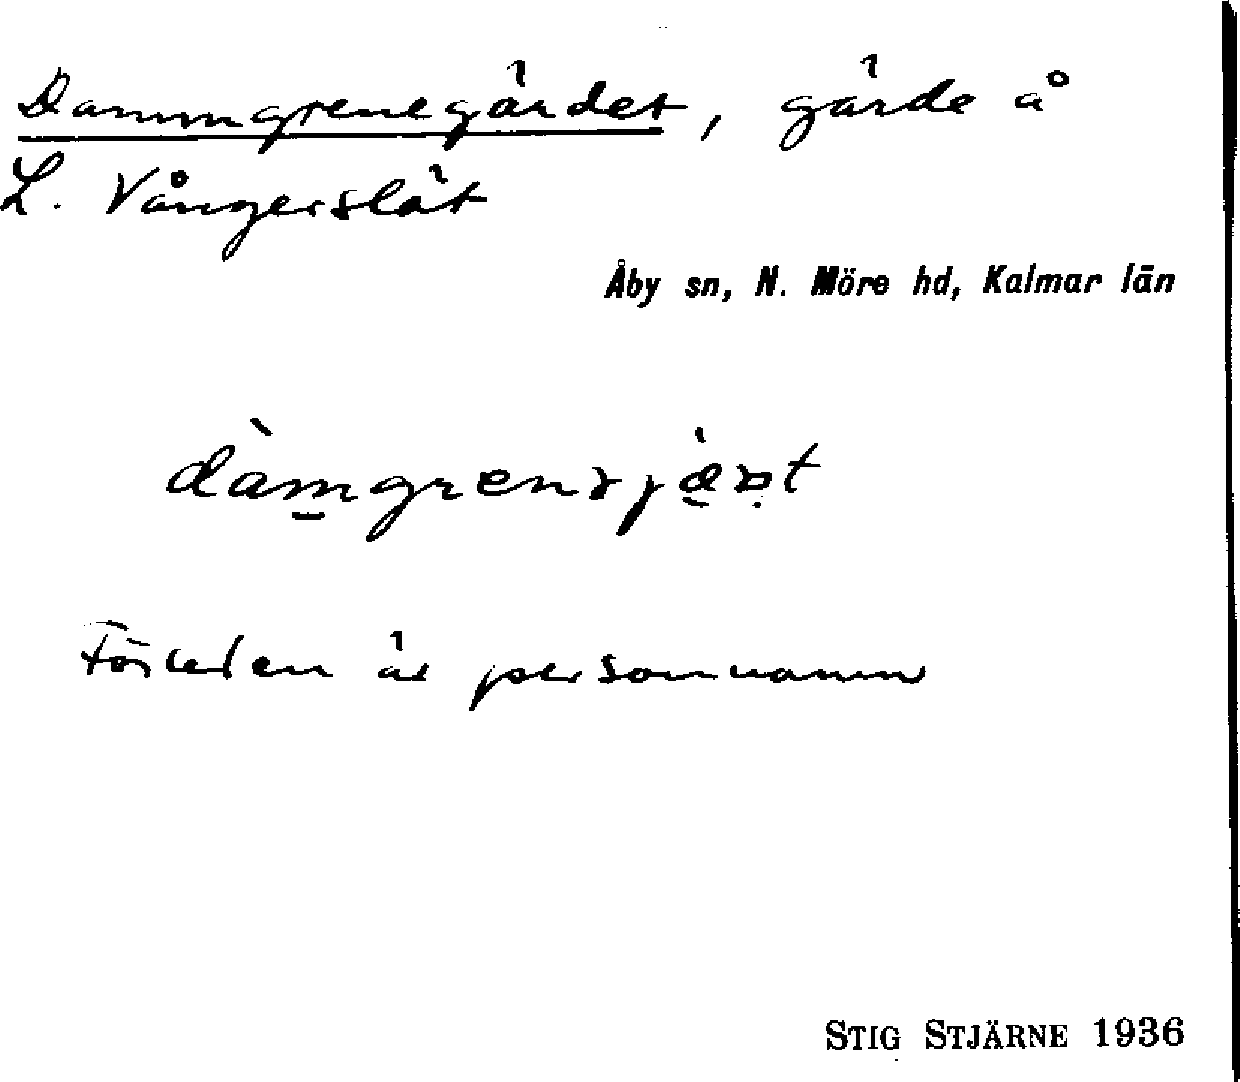 Dammgrenegärdet, gärde å
L. Vångerslät
Åby sn, N. Möre hd, Kalmar län
Förleden är personnamn
STIG STJÄRNE 1936